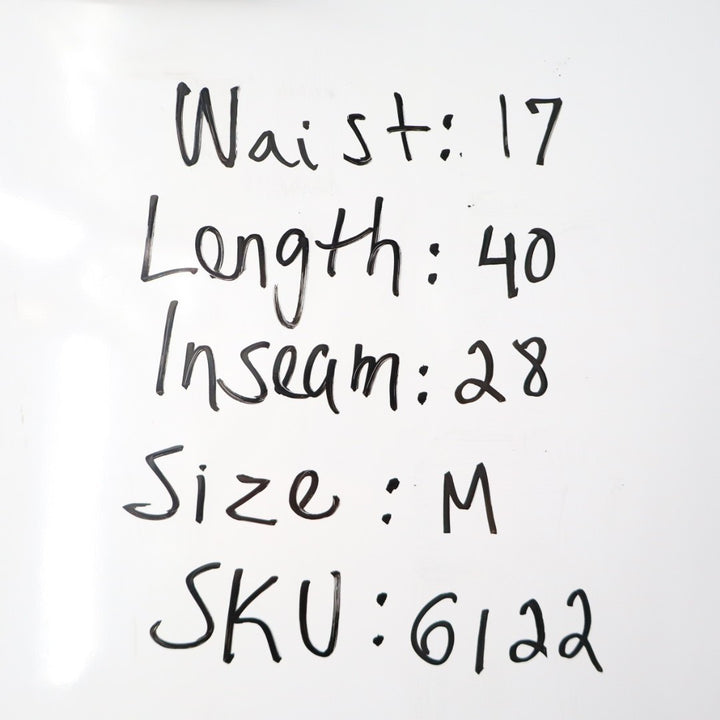 Waist: 17
Length: 40
Inseam: 28
Size: M
SKU: 6122